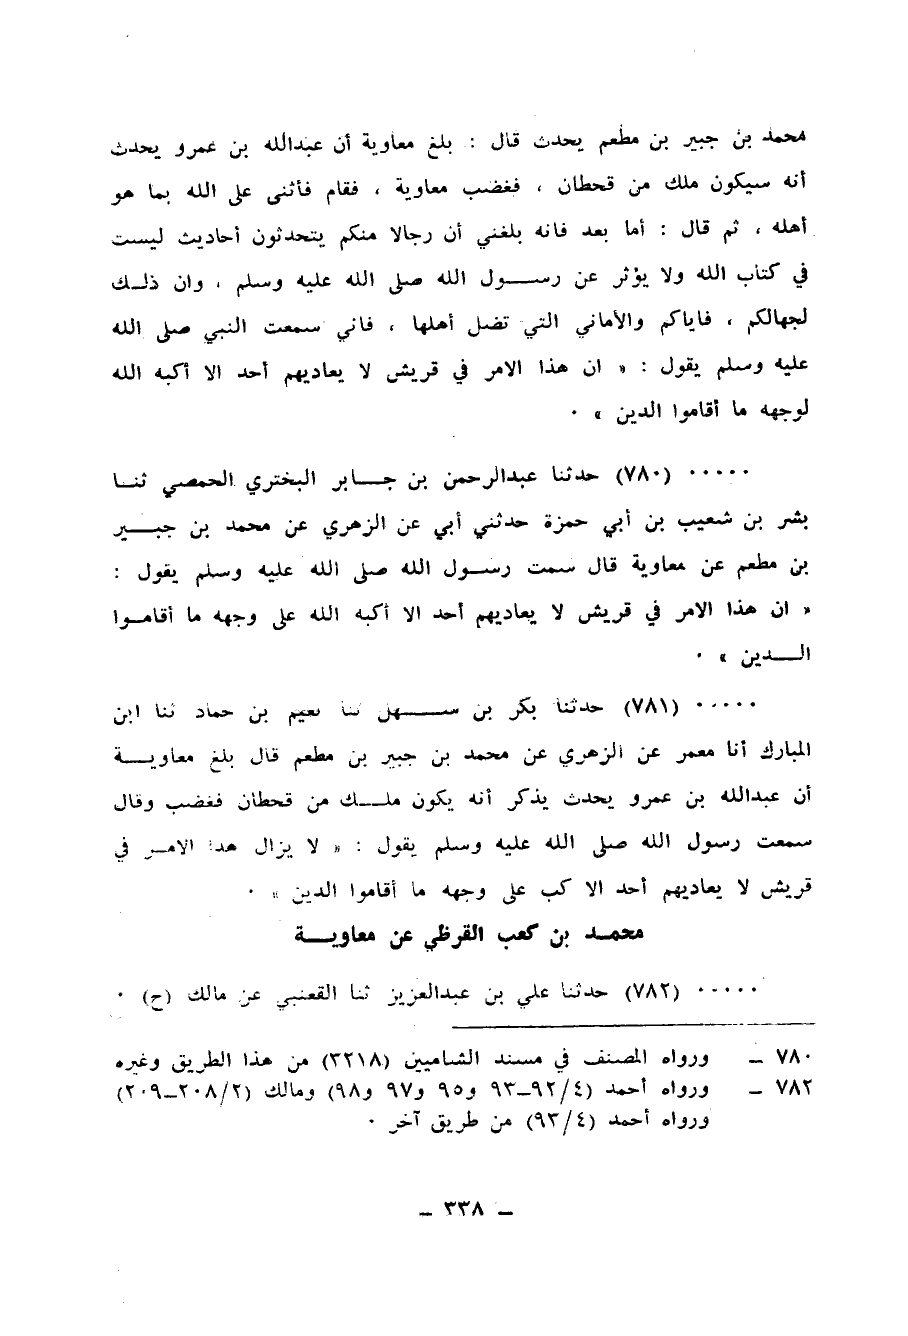 محمد بن جبير بن مطعم يحدث قال : بلغ معاوية أن عبدالله بن عمرو يحدث
أنه سيكون ملك من قحطان ، فغضب معاوية ، فقام فأثنى على الله بما هو
أهله ، ثم قال : أما بعد فانه بلغني أن رجالا منكم يتحدثون أحاديث ليست
في كتاب الله ولا يؤثر عن رســـول الله صلى الله عليه وسلم ، وان ذلـك
لجهالكم ، فاياكم والأماني التي تضل أهلها ، فاني سمعت النبي صلى الله
عليه وسلم يقول : « ان هذا الامر في قريش لا يعاديهم أحد الا أكبه الله
لوجهه ما أقاموا الدين » ٠
٠٠٠٠٠ (٧٨٠) حدثنا عبدالرحمن بن جـــابر البختري الحمصي ثنـا
بشر بن شعيب بن أبي حمزة حدثني أبي عن الزهري عن محمد بن جبــير
بن مطعم عن معاوية قال سمت رسـول الله صلى الله عليه وسلم يقول :
« ان هذا الامر في قريش لا يعاديهم أحد الا أكبه الله على وجهه ما أقامـوا
الـــدين » ٠
٠٠٠٠٠ (٧٨١) حدثنا بكر بن ســـهل ثنا نعيم بن حماد ثنا ابن
المبارك أنا معمر عن الزهري عن محمد بن جبير بن مطعم قال بلغ معاويــة
أن عبدالله بن عمرو يحدث يذكر أنه يكون ملــك من قحطان فغضب وقال
سمعت رسول الله صلى الله عليه وسلم يقول : « لا يزال هذا الامـر في
قريش لا يعاديهم أحد الا كب على وجهه ما أقاموا الدين » ٠
محمـد بن كعب القرظي عن معاويــة
٠٠٠٠٠ (٧٨٢) حدثنا علي بن عبدالعزيز ثنا القعنبي عن مالك (ح) ٠
٧٨٠ ـ ورواه المصنف في مسند الشاميين (٣٢١٨) من هذا الطريق وغيره
٧٨٢ ـ ورواه أحمد (٤/٩٢ـ٩٣ و٩٥ و٩٧ و٩٨) ومالك (٢/٢٠٨ـ٢٠٩)
ورواه أحمد (٤/٩٣) من طريق آخر ٠
ـ ٣٣٨ ـ